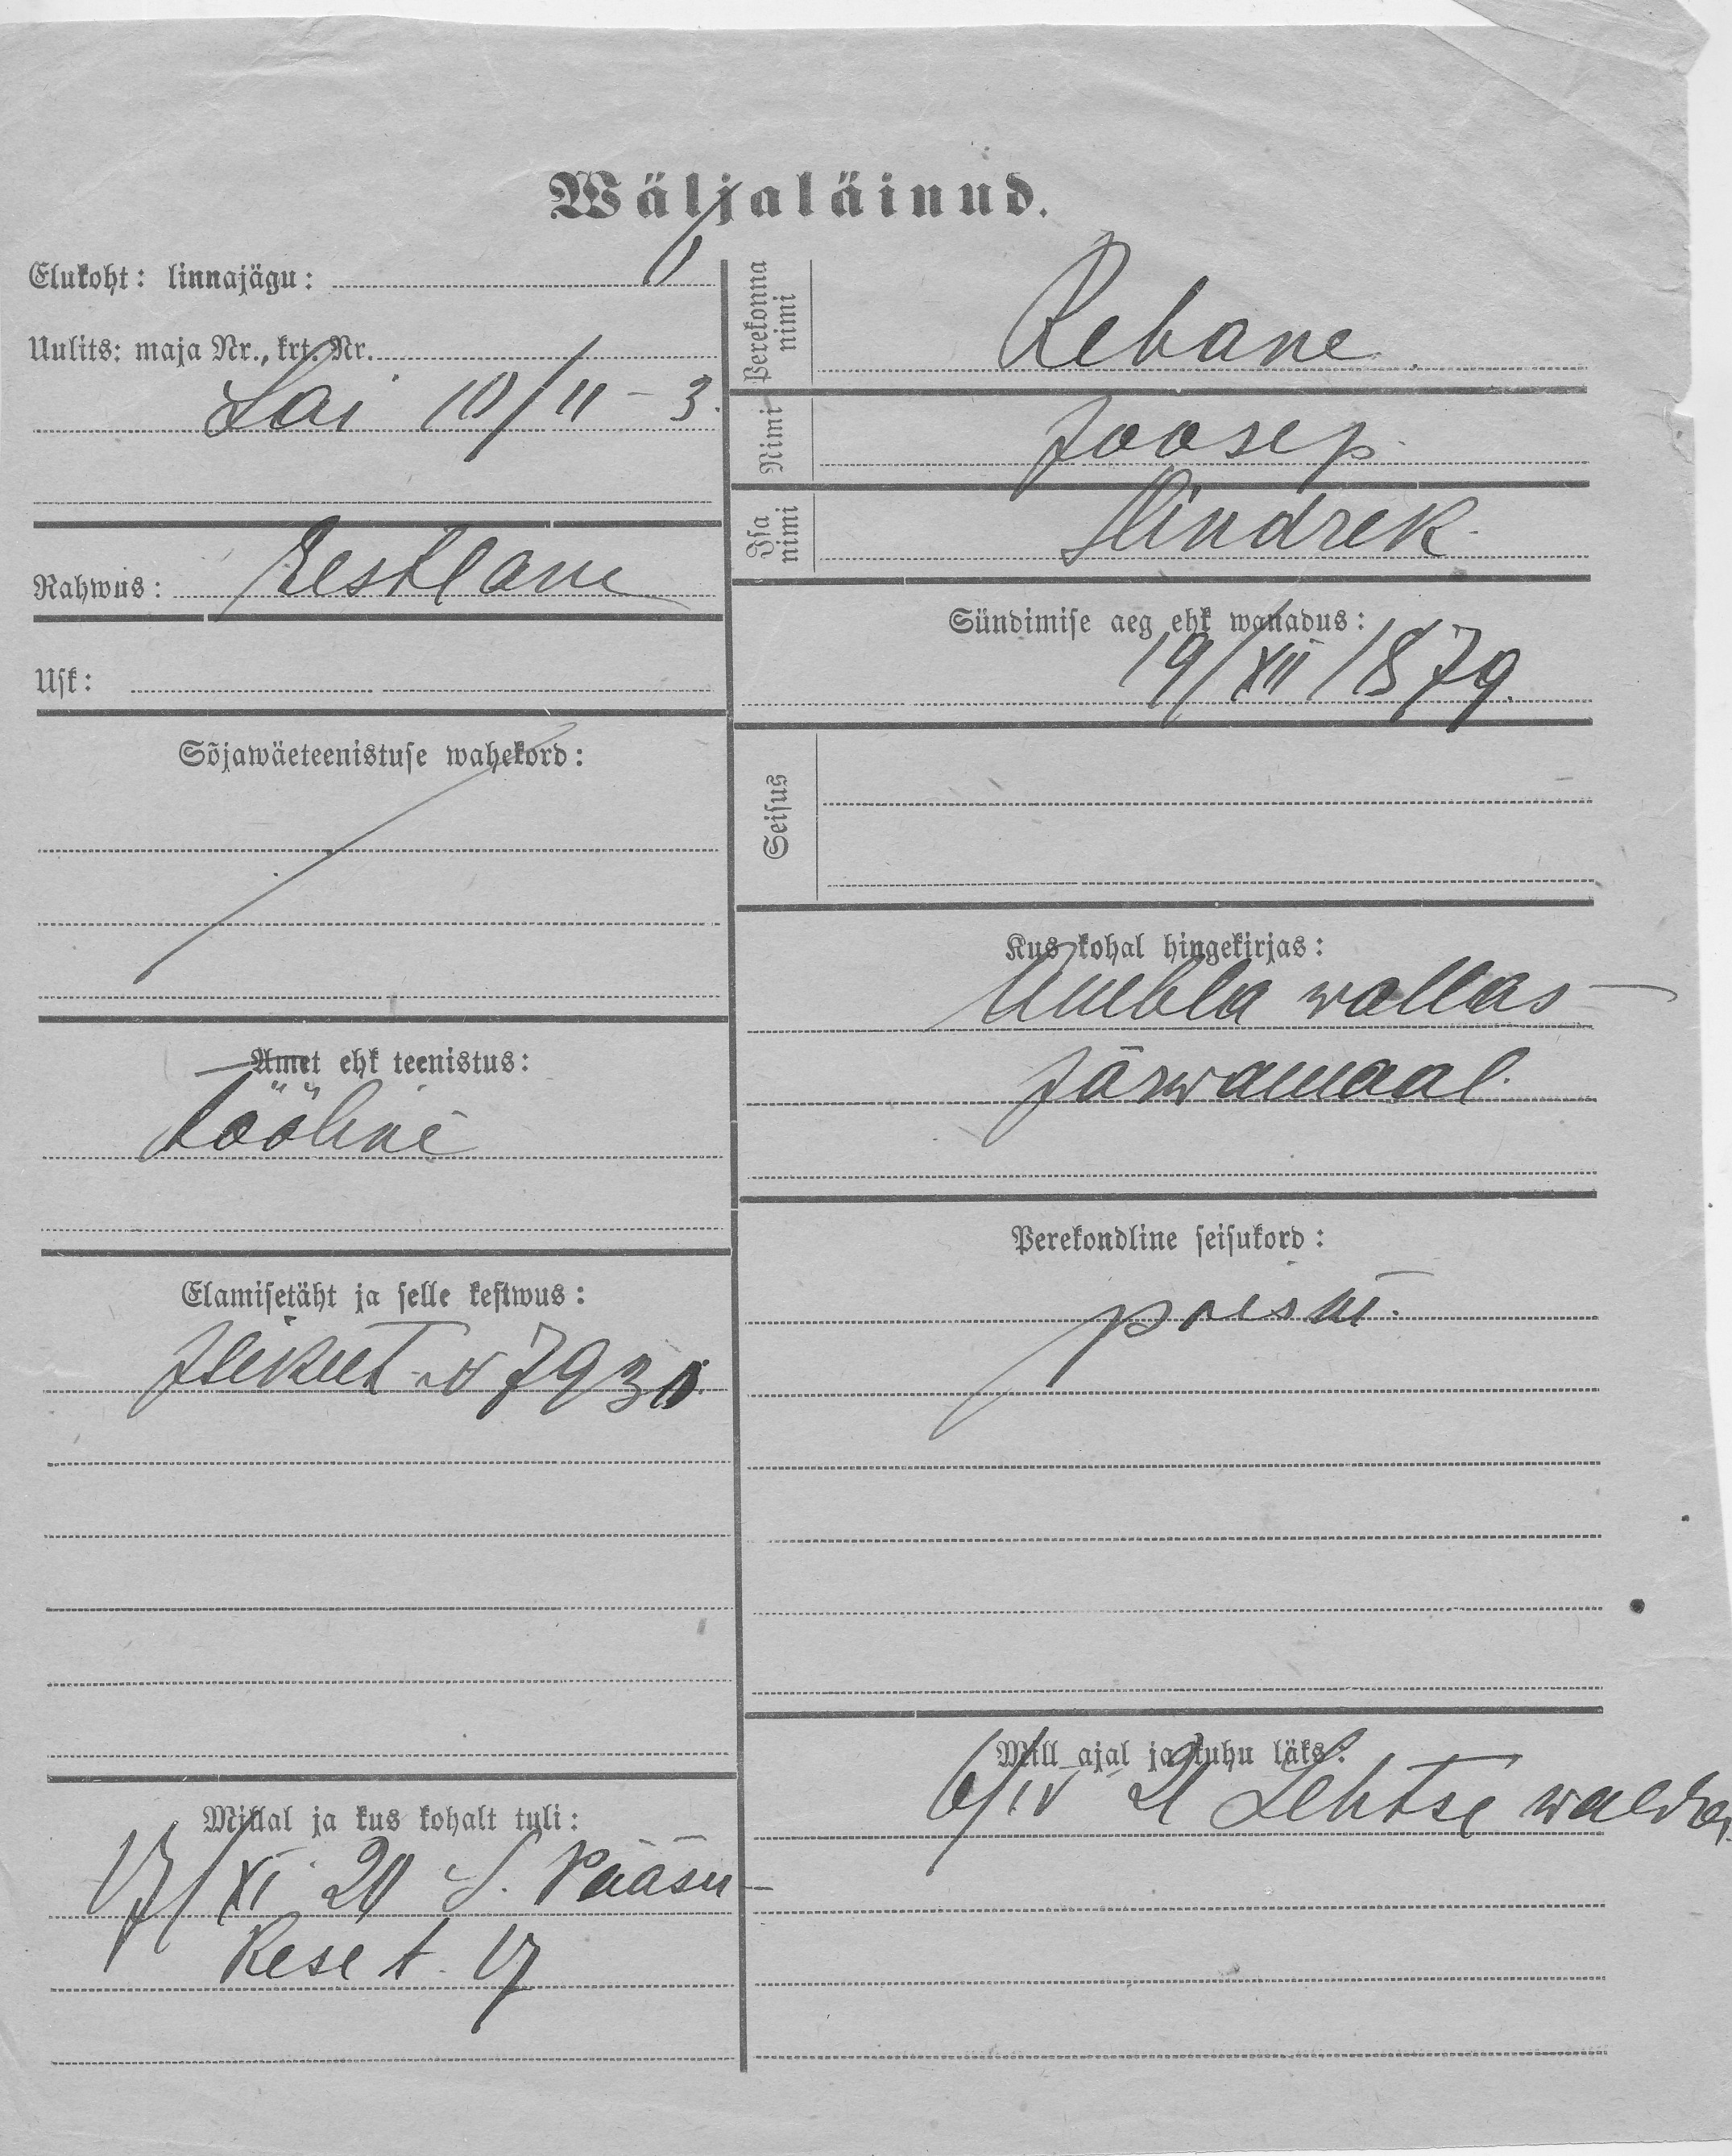 Wäljaläinud.
Elukoht: linnajägu: I
Uulits: maja Nr., krt. Nr.
Lai 10/11 – 3.
Rahwus: Eestlane
Usk:
Sõjawäeteenistuse wahekord:
Amet ehk teenistus:
tööline
Elamisetäht ja selle kestwus:
N 7930
Millal ja kus kohalt tuli:
17/XI 20 S. Pääsu-
kese t. 17
Perekonna nimi Rebane.
Nimi Joosep.
Isa nimi Hindrek.
Sündimise aeg ehk wanadus:
19/XII 1879.
Seisus
Kus kohal hingekirjas:
Ambla wallas
Järwamaal.
Perekondline seisukord:
Mill ajal ja kuhu läks:
6/IV 21 Lehtse walda.